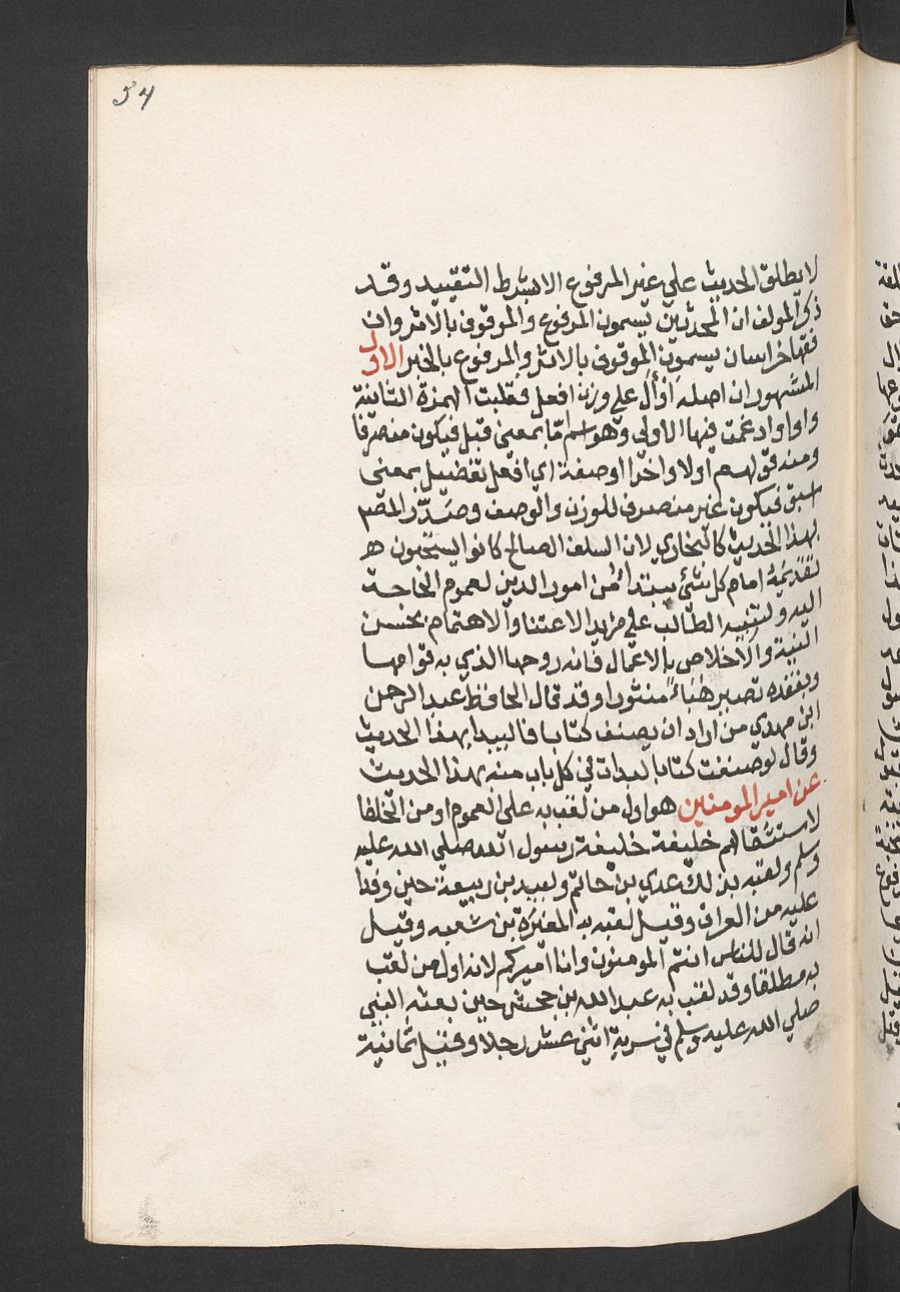 54
لا يطلق الحديث علي غير المرفوع الا بشرط التقييد وقد
ذكر المولف ان المحدثين يسمون المرفوع والموقوف بالاثر وان
فقها خراسان يسمون الموقوف بالاثر والمرفوع بالخبر الاول
المشهور ان اصله اوأل علي وزن افعل فقلبت الهمزة الثانية
واوا وادغمت فيها الاولي وهو اسم امّا بمعني قبل فيكون منصرفا
ومنه قولهم اولا واخرا او صفة اي افعل تفضيل بمعني
اسبق فيكون غير منصرف للوزن والوصف وصدّر المصـ
بهذا الحديث كالبخاري لان السلف الصالح كانوا يستحبون
تقديمه امام كل شئ يبتدأ من امور الدين لعموم الحاجة
اليه ولتنبيه الطالب علي مزيد الاعتنا والاهتمام بحسن
النية والاخلاص بالاعمال فانه روحها الذي به قوامها
وبفقده تصير هباءً منثورا وقد قال الحافظ عبد الرحمن
ابن مهدي من اراد ان يصنف كتابا فاليبدا بهذا الحديث
وقال لو صنفت كتابا لبدات في كل باب منه بهذا الحديث
عن امير المومنين هو اول من لقب به علي العموم او من الخلفا
لاستثقالهم خليفة خليفة رسول الله صلي الله عليه
وسلم ولقبه بذلك عدي بن حاتم ولبيد بن ربيعة حين وفدا
عليه من العراق وقيل لقبه به المغيرة بن شعبه وقيل
انه قال للناس انتم المومنون وانا اميركم لانه اول من لقب
به مطلقا وقد لقب به عبد الله بن جحش حين بعثه النبي
صلي الله عليه وسلم في سرية اثني عشر رجلا وقيل ثمانية